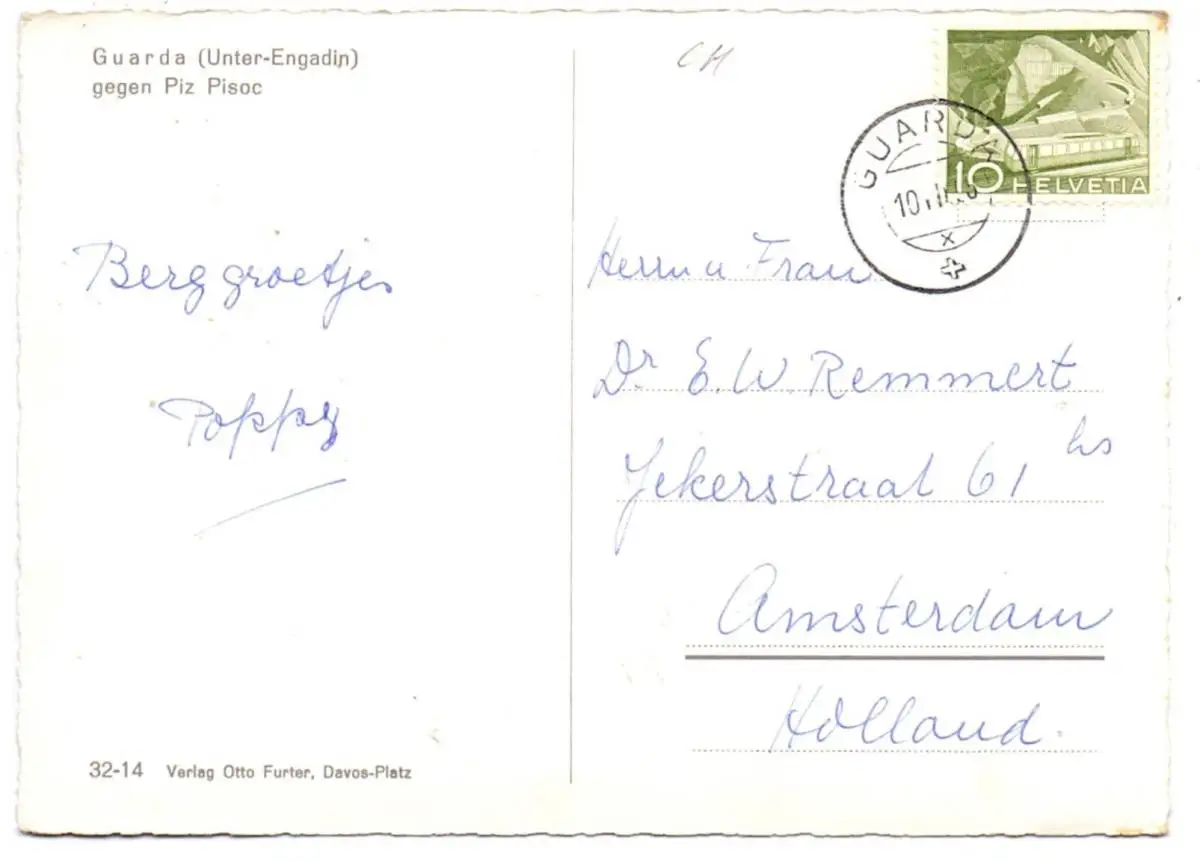 Guarda (Unter-Engadin)
gegen Piz Pisoc
CH
GUARDA
10
10 HELVETIA
x
Berg groetjes
Poppy
Herrn u Frau
Dr E. W. Remmert
Jekerstraat 61 hs
Amsterdam
Holland.
32-14 Verlag Otto Furter, Davos-Platz